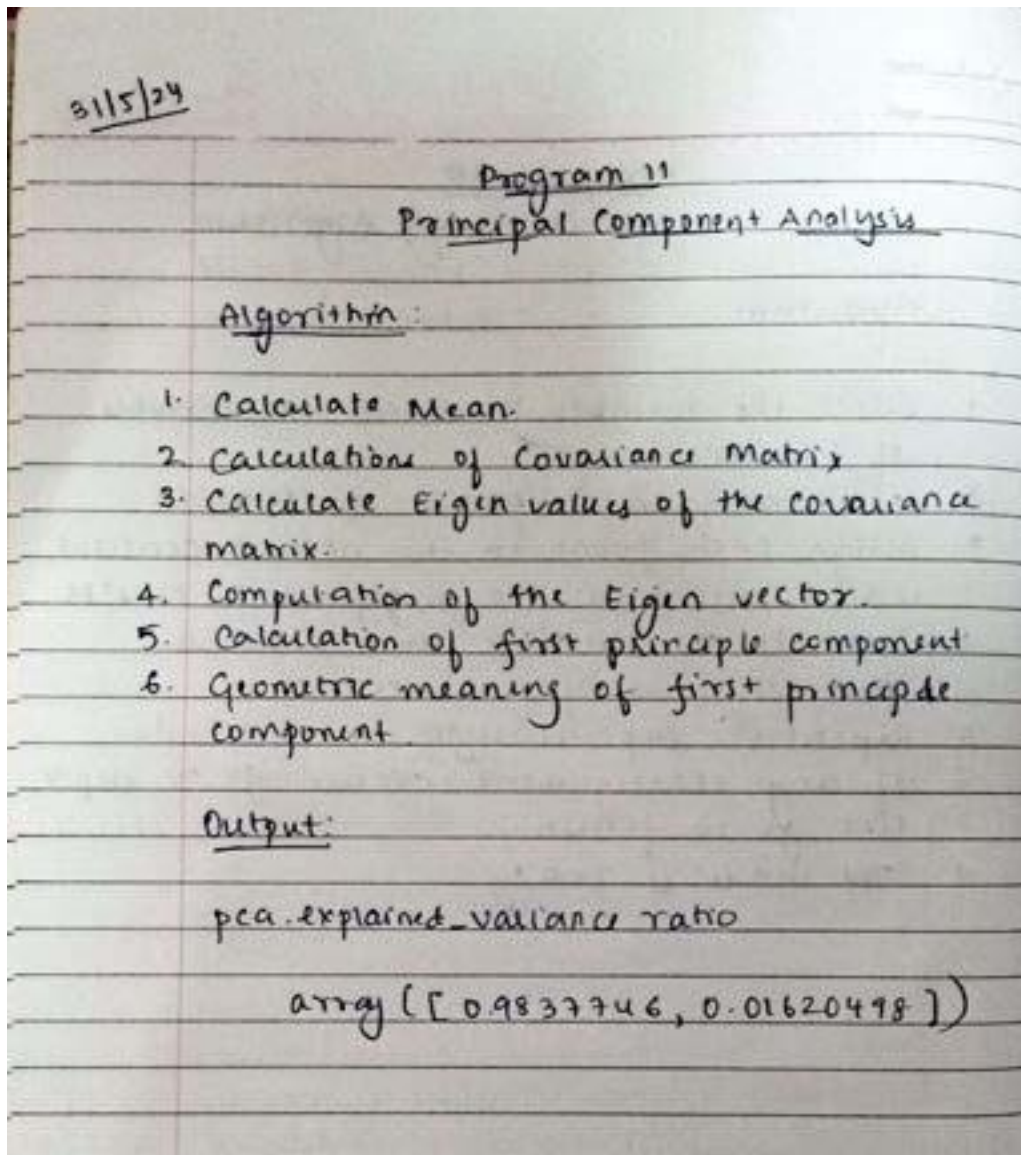 31/5/24
Program 11
Principal Component Analysis
Algorithm:
1. Calculate Mean.
2. Calculations of Covariance Matrix
3. Calculate Eigen values of the covariance
matrix.
4. Computation of the Eigen vector.
5. Calculation of first principle component
6. Geometric meaning of first principle
component.
Output:
pca.explained_variance ratio
array ([0.9837746, 0.01620498])